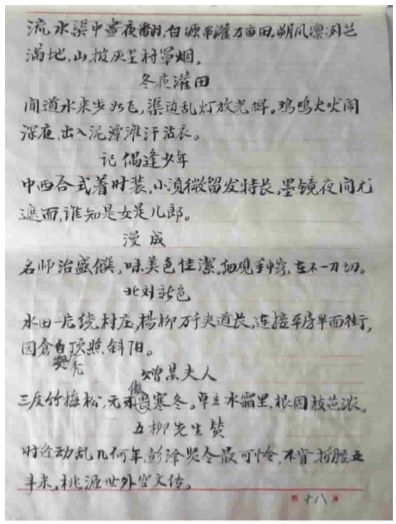 流水渠中昼夜翻,白塬串灌万亩田,朔风凛冽兰
满地,山披灰呈村罩烟。
冬夜灌田
闻道水来步如飞,渠边乱灯放光辉。鸡鸣犬吠闹
深夜,出入泥潭淮汗沾衣。
记偶逢少年
中西合式着时装,小须微留发特长,墨镜夜间尤
遮面,谁知是女是儿郎。
漫成
名师治盛馔,味美色佳洁,细观手窍,在不一刀切。
北刘新色
水田一片绕村庄,杨柳万千夹道长,连接平房平面街,
囷仓顶照斜阳。
赠某夫人
三友竹梅松,无求畏寒冬。卓立冰霜里,根固枝芯浓。
五柳先生赞
时近动乱几何年,彭泽县令最可怜,不肯折腰五
斗米,桃源世外空文传。
第十八页